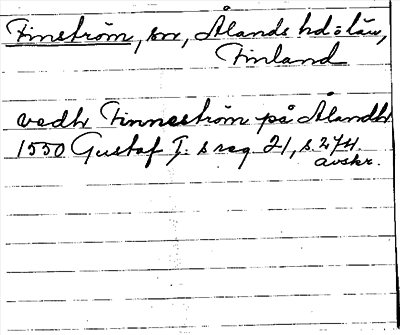 Finström, sn, Ålands hd o län,
Finland
vedh Finneström på Ålandh
1550 Gustaf I:s reg 21, s. 274.
avskr.